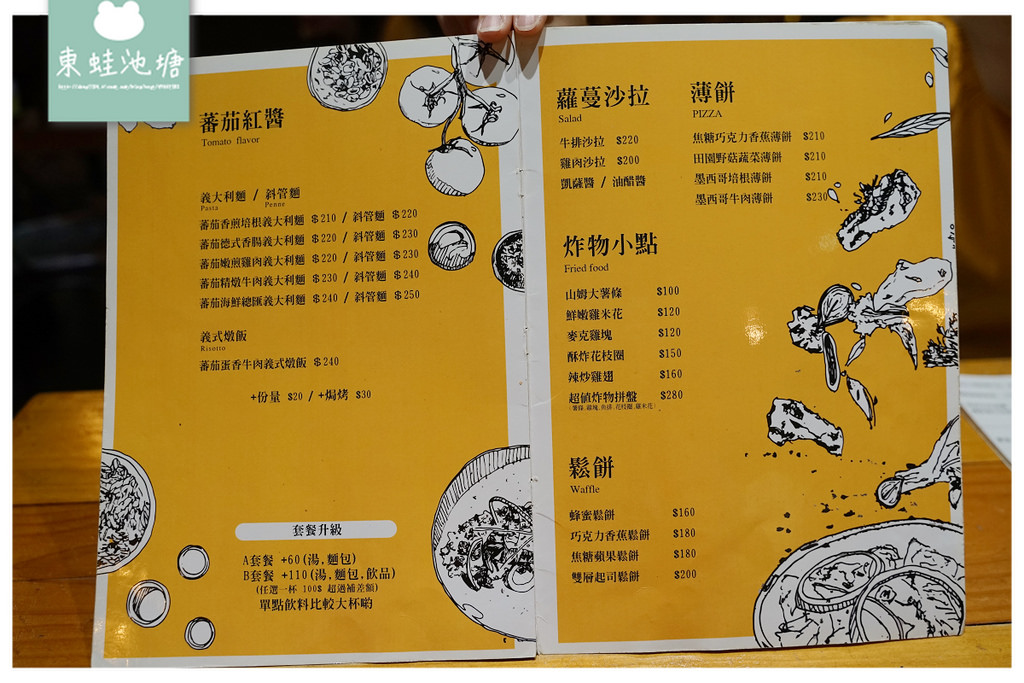 東蛙池塘
蕃茄紅醬
Tomato flavor
義大利麵 / 斜管麵
Pasta Penne
蕃茄香煎培根義大利麵 $210 / 斜管麵 $220
蕃茄德式香腸義大利麵 $220 / 斜管麵 $230
蕃茄嫩煎雞肉義大利麵 $220 / 斜管麵 $230
蕃茄精燉牛肉義大利麵 $230 / 斜管麵 $240
蕃茄海鮮總匯義大利麵 $240 / 斜管麵 $250
義式燉飯
Risotto
蕃茄蛋香牛肉義式燉飯 $240
+份量 $20 / +焗烤 $30
套餐升級
A套餐 +60(湯.麵包)
B套餐 +110(湯.麵包.飲品)
(任選一杯 100$ 超過補差額)
單點飲料比較大杯喲
蘿蔓沙拉
Salad
牛排沙拉 $220
雞肉沙拉 $200
凱薩醬 / 油醋醬
薄餅
PIZZA
焦糖巧克力香蕉薄餅 $210
田園野菇蔬菜薄餅 $210
墨西哥培根薄餅 $210
墨西哥牛肉薄餅 $230
炸物小點
Fried food
山姆大薯條 $100
鮮嫩雞米花 $120
麥克雞塊 $120
酥炸花枝圈 $150
辣炒雞翅 $160
超值炸物拼盤 $280
(薯條.雞塊.魚排.花枝圈.雞米花)
鬆餅
Waffle
蜂蜜鬆餅 $160
巧克力香蕉鬆餅 $180
焦糖蘋果鬆餅 $180
雙層起司鬆餅 $200